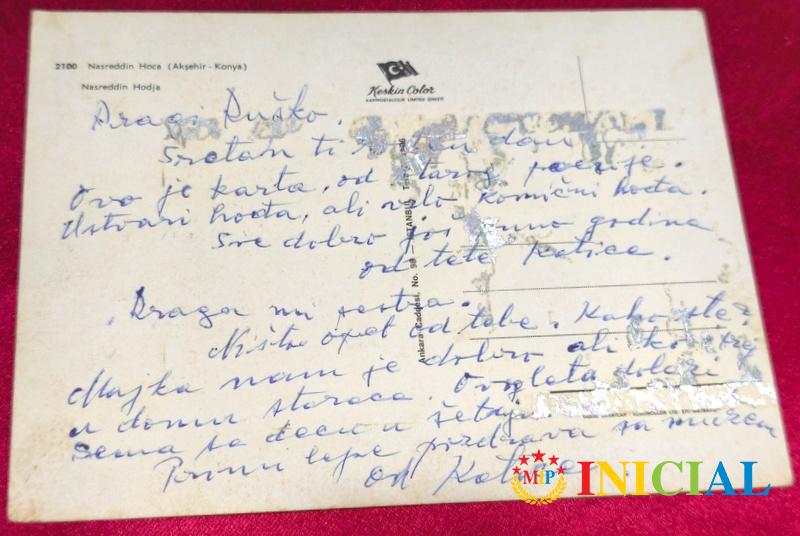 2100 Nasreddin Hoca (Akşehir - Konya)
Nasreddin Hodja
Keskin Color
KARTPOSTALCILIK LIMITED ŞİRKETİ
Ankara Caddesi, No. 98 — İSTANBUL
Dragi Duško.
Sretan ti dan
Ovo je karta, od starog poezije.
Ustvari hođa, ali vrlo komični hođa.
Sve dobro još puno godina
od tete Katice.
Draga mi sestra.
Ništa opet od tebe. Kako ste?
Majka nam je dobro ali
u domu staraca. Ovog leta dolazi
Sema sa decu u
Primi lepe pozdrava sa
od Katice
MIP INICIAL